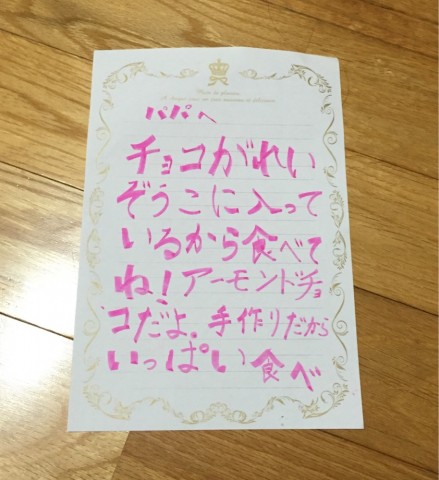 パパへ
チョコがれい
ぞうこに入って
いるから食べて
ね!アーモンドチョ
コだよ。手作りだから
いっぱい食べ